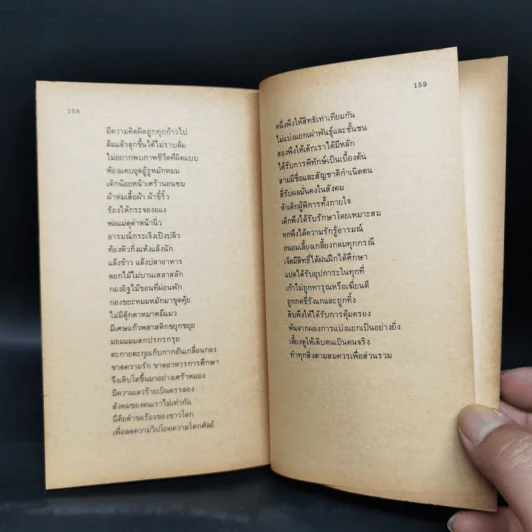 158
มีความคิดผิดถูกทุกก้าวไป
ล้มแล้วลุกขึ้นได้ไม่ราบล้ม
ไม่อยากพบภาพชีวิตที่ผิดแบบ
ท้องแคบอุดอู้รูหมักหมม
เด็กน้อยหน้าเศร้านอนซม
ผ้าห่มเสื้อผ้า ผ้าขี้ริ้ว
ร้องไห้กระจองอแง
พ่อแม่ดูด่าหน้านิ่ว
อารมณ์กระเจิงเปิงปลิว
ท้องหิวกิ่งแห้งแล้งนัก
แล้งข้าว แล้งปลาอาหาร
ดอกไม้ไม่บานเหลาสลัก
กองอิฐไม้ขอนที่ผ่อนพัก
กองขยะหมมหมักมาขุดคุ้ย
ไม่มีตุ๊กตาหมาหมีแมว
มีเศษแก้วพลาสติกขยุกขยุย
มอมแมมสกปรกรกรุย
ตะกายตะกุยเก็บกากอันเกลื่อนกอง
ขาดความรัก ขาดอาหารการศึกษา
จึงเติบโตขึ้นมาอย่างเศร้าหมอง
มีความเลวร้ายเป็นครรลอง
สังคมของคนเราไม่เท่ากัน
นี่คือคำขอร้องของชาวโลก
เพื่อลดความวิปโยคความโศกศัลย์
159
หนึ่งพึงให้สิทธิเท่าเทียมกัน
ไม่แบ่งแยกเผ่าพันธุ์และชั้นชน
สองพึงให้เด็กเราได้มีหลัก
ได้รับการพิทักษ์เป็นเบื้องต้น
สามมีชื่อและสัญชาติกำเนิดตน
สี่รับผลมั่นคงในสังคม
ห้าเด็กผู้พิการทั้งกายใจ
เด็กพึงได้รับรักษาโดยเหมาะสม
หกพึงได้ความรักรู้อารมณ์
ถนอมเลี้ยงเกลี้ยงกลมทุกกรณี
เจ็ดมีสิทธิ์ได้ฝนฝึกได้ศึกษา
แปดได้รับอุปการะในทุกที่
เก้าไม่ถูกทารุณหรือเฆี่ยนตี
ถูกกดขี่รังแกและถูกทิ้ง
สิบพึงให้ได้รับการคุ้มครอง
พ้นจากผองการแบ่งแยกเป็นอย่างยิ่ง
เลี้ยงดูให้เติบตนเป็นคนจริง
ทำทุกสิ่งตามสมควรเพื่อส่วนรวม